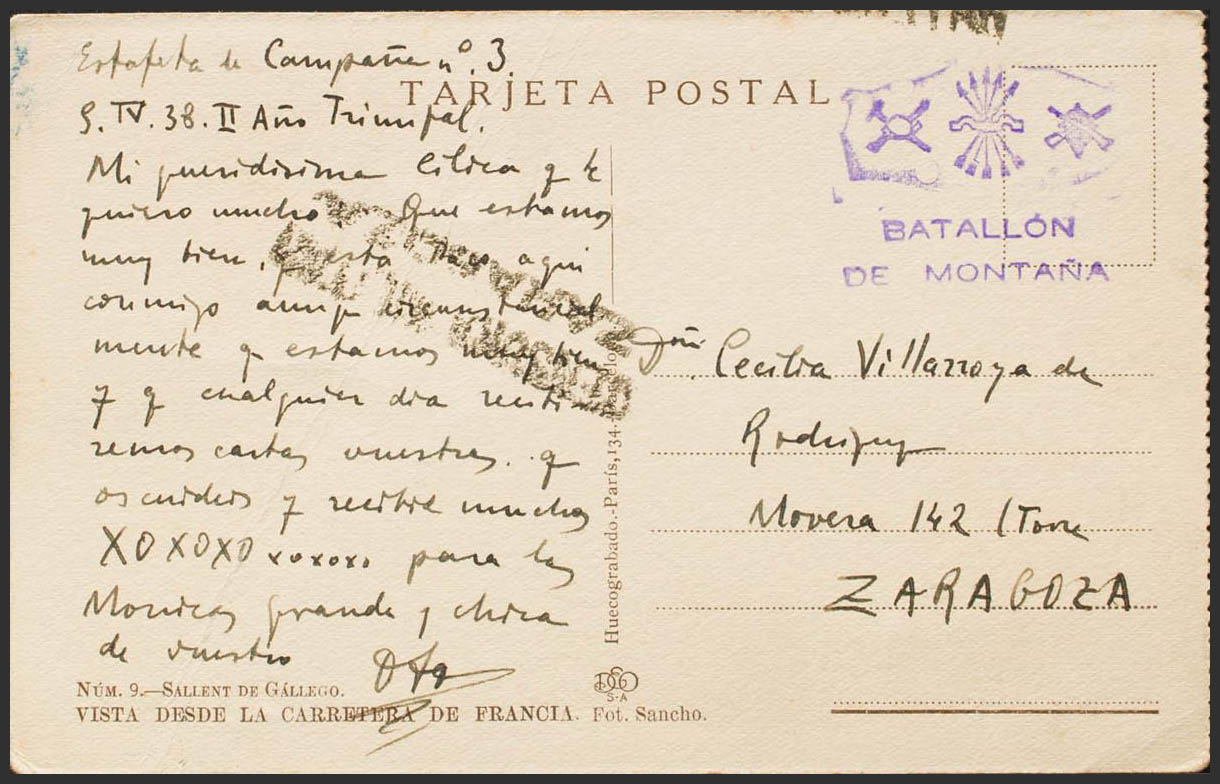 Estafeta de Campaña nº. 3.
TARJETA POSTAL
9. IV. 38. II Año Triunfal.
Mi queridisima Cilica q te
quiero mucho: Que estamos
muy bien, q está Paco aqui
conmigo aunq circunstancial
mente q estamos muy bien
y q cualquier dia recibi-
remos cartas vuestras. q
os cuideis y recibid muchos
XOXOXO xoxoxo para las
Monicas grande y chica
de vuestro
BATALLÓN
DE MONTAÑA
Doña Cecilia Villarroya de
Rodriguez
Movera 142 (Torre
ZARAGOZA
Huecograbado.-París, 134.-
NÚM. 9.—SALLENT DE GÁLLEGO.
VISTA DESDE LA CARRETERA DE FRANCIA. Fot. Sancho.
S-A